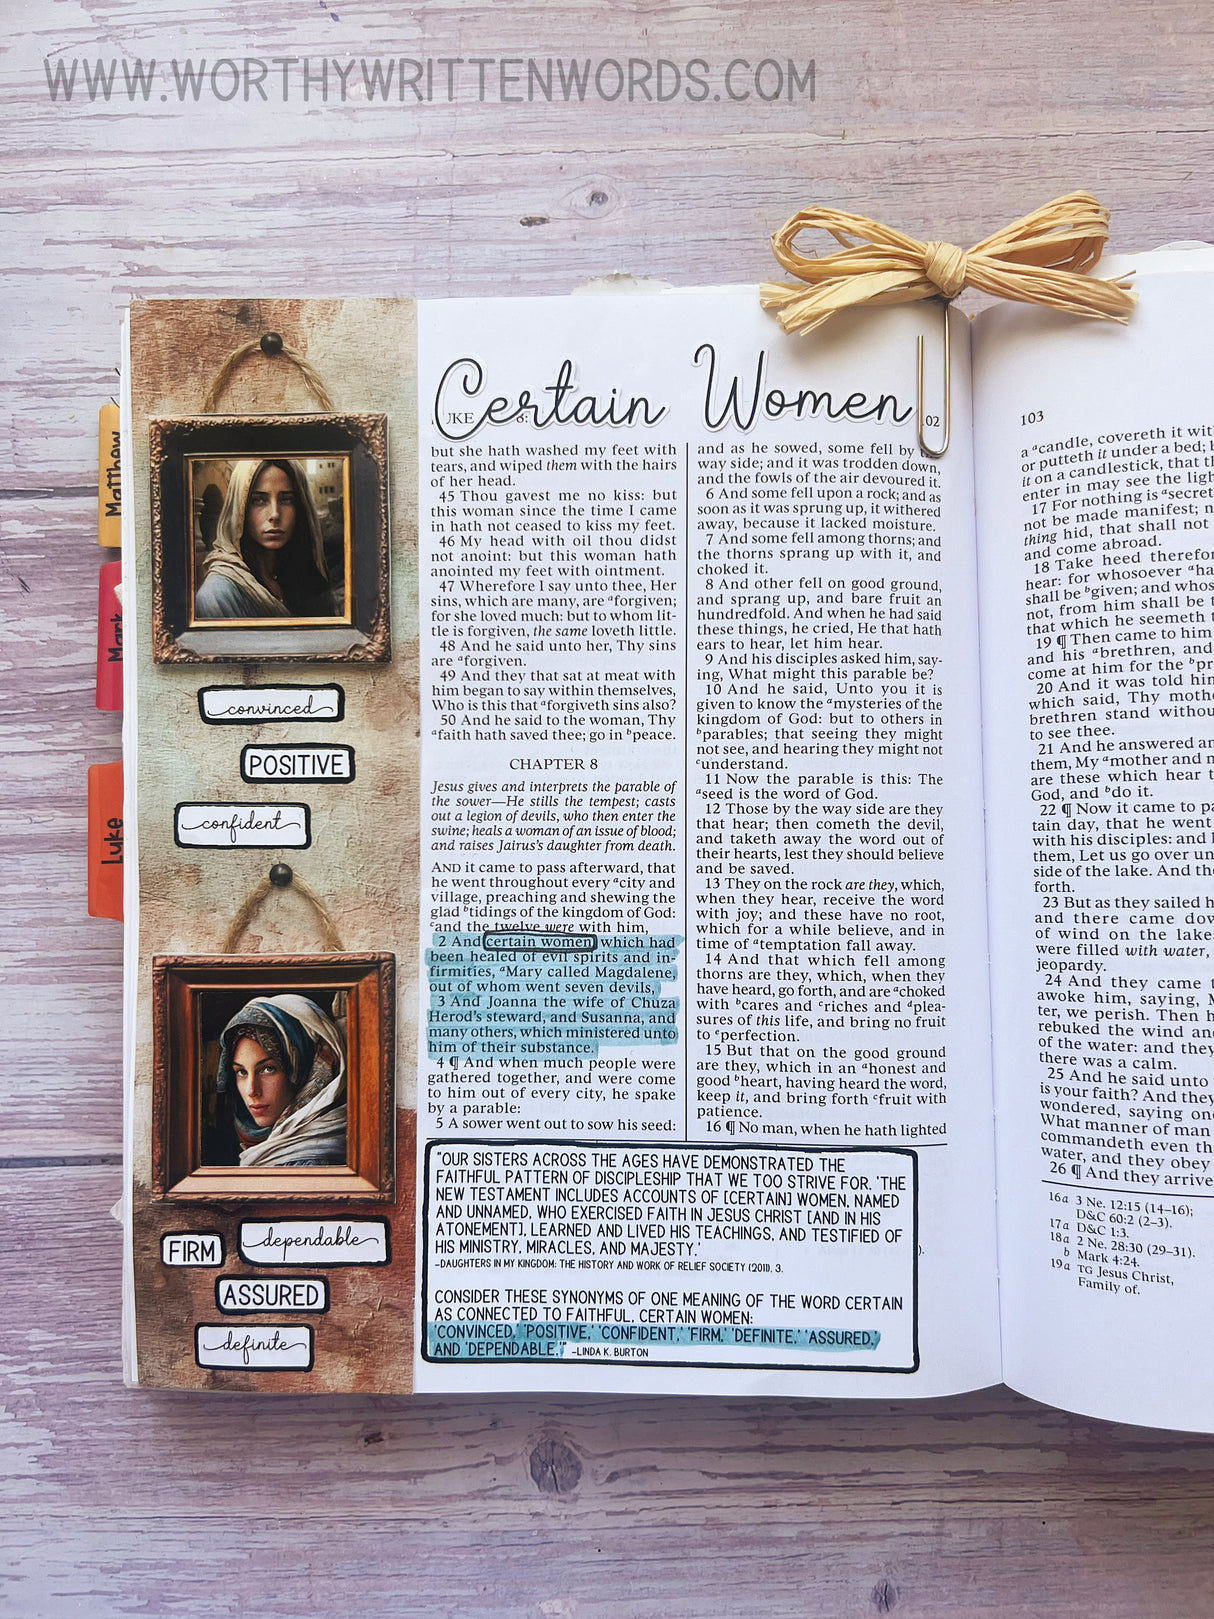 WWW.WORTHYWRITTENWORDS.COM
Certain Women
UKE
02
Matthew
Mark
Luke
convinced
POSITIVE
confident
FIRM
dependable
ASSURED
definite
but she hath washed my feet with
tears, and wiped them with the hairs
of her head.
45 Thou gavest me no kiss: but
this woman since the time I came
in hath not ceased to kiss my feet.
46 My head with oil thou didst
not anoint: but this woman hath
anointed my feet with ointment.
47 Wherefore I say unto thee, Her
sins, which are many, are ᵃforgiven;
for she loved much: but to whom lit-
tle is forgiven, the same loveth little.
48 And he said unto her, Thy sins
are ᵃforgiven.
49 And they that sat at meat with
him began to say within themselves,
Who is this that ᵃforgiveth sins also?
50 And he said to the woman, Thy
ᵃfaith hath saved thee; go in ᵇpeace.
CHAPTER 8
Jesus gives and interprets the parable of
the sower—He stills the tempest; casts
out a legion of devils, who then enter the
swine; heals a woman of an issue of blood;
and raises Jairus's daughter from death.
AND it came to pass afterward, that
he went throughout every ᵃcity and
village, preaching and shewing the
glad ᵇtidings of the kingdom of God:
ᶜand the twelve were with him,
2 And certain women, which had
been healed of evil spirits and in-
firmities, ᵃMary called Magdalene,
out of whom went seven devils,
3 And Joanna the wife of Chuza
Herod's steward, and Susanna, and
many others, which ministered unto
him of their substance.
4 ¶ And when much people were
gathered together, and were come
to him out of every city, he spake
by a parable:
5 A sower went out to sow his seed:
and as he sowed, some fell by
way side; and it was trodden down,
and the fowls of the air devoured it.
6 And some fell upon a rock; and as
soon as it was sprung up, it withered
away, because it lacked moisture.
7 And some fell among thorns; and
the thorns sprang up with it, and
choked it.
8 And other fell on good ground,
and sprang up, and bare fruit an
hundredfold. And when he had said
these things, he cried, He that hath
ears to hear, let him hear.
9 And his disciples asked him, say-
ing, What might this parable be?
10 And he said, Unto you it is
given to know the ᵃmysteries of the
kingdom of God: but to others in
ᵇparables; that seeing they might
not see, and hearing they might not
ᶜunderstand.
11 Now the parable is this: The
ᵃseed is the word of God.
12 Those by the way side are they
that hear; then cometh the devil,
and taketh away the word out of
their hearts, lest they should believe
and be saved.
13 They on the rock are they, which,
when they hear, receive the word
with joy; and these have no root,
which for a while believe, and in
time of ᵃtemptation fall away.
14 And that which fell among
thorns are they, which, when they
have heard, go forth, and are ᵃchoked
with ᵇcares and ᶜriches and ᵈplea-
sures of this life, and bring no fruit
to ᵉperfection.
15 But that on the good ground
are they, which in an ᵃhonest and
good ᵇheart, having heard the word,
keep it, and bring forth ᶜfruit with
patience.
16 ¶ No man, when he hath lighted
"OUR SISTERS ACROSS THE AGES HAVE DEMONSTRATED THE
FAITHFUL PATTERN OF DISCIPLESHIP THAT WE TOO STRIVE FOR. 'THE
NEW TESTAMENT INCLUDES ACCOUNTS OF [CERTAIN] WOMEN, NAMED
AND UNNAMED, WHO EXERCISED FAITH IN JESUS CHRIST [AND IN HIS
ATONEMENT], LEARNED AND LIVED HIS TEACHINGS, AND TESTIFIED OF
HIS MINISTRY, MIRACLES, AND MAJESTY.'
-DAUGHTERS IN MY KINGDOM: THE HISTORY AND WORK OF RELIEF SOCIETY (2011), 3.
CONSIDER THESE SYNONYMS OF ONE MEANING OF THE WORD CERTAIN
AS CONNECTED TO FAITHFUL, CERTAIN WOMEN:
'CONVINCED,' 'POSITIVE,' 'CONFIDENT,' 'FIRM,' 'DEFINITE,' 'ASSURED,'
AND 'DEPENDABLE.'" -LINDA K. BURTON
103
a ᵃcandle, covereth it wit
or putteth it under a bed; b
it on a candlestick, that th
enter in may see the ligh
17 For nothing is ᵃsecret
not be made manifest; n
thing hid, that shall not
and come abroad.
18 Take heed therefor
hear: for whosoever ᵃha
shall be ᵇgiven; and whos
not, from him shall be t
that which he seemeth t
19 ¶ Then came to him
and his ᵃbrethren, and
come at him for the ᵇpr
20 And it was told him
which said, Thy moth
brethren stand withou
to see thee.
21 And he answered an
them, My ᵃmother and m
are these which hear t
God, and ᵇdo it.
22 ¶ Now it came to pa
tain day, that he went
with his disciples: and h
them, Let us go over un
side of the lake. And the
forth.
23 But as they sailed h
and there came dov
of wind on the lake
were filled with water,
jeopardy.
24 And they came t
awoke him, saying, M
ter, we perish. Then h
rebuked the wind an
of the water: and they
there was a calm.
25 And he said unto
is your faith? And they
wondered, saying on
What manner of man
commandeth even th
water, and they obey
26 ¶ And they arrive
16a 3 Ne. 12:15 (14–16);
D&C 60:2 (2–3).
17a D&C 1:3.
18a 2 Ne. 28:30 (29–31).
b Mark 4:24.
19a TG Jesus Christ,
Family of.